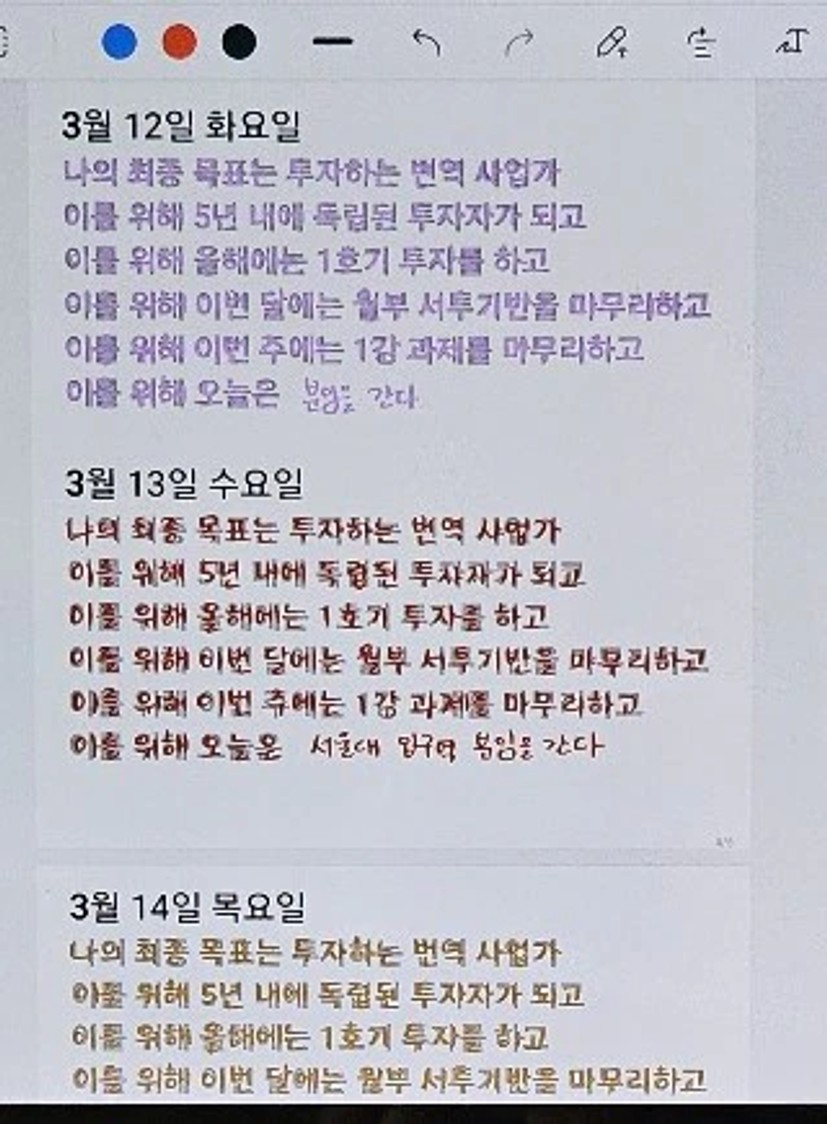 3월 12일 화요일
나의 최종 목표는 투자하는 번역 사업가
이를 위해 5년 내에 독립된 투자자가 되고
이를 위해 올해에는 1호기 투자를 하고
이를 위해 이번 달에는 월부 서투기반을 마무리하고
이를 위해 이번 주에는 1강 과제를 마무리하고
이를 위해 오늘은 분임을 간다
3월 13일 수요일
나의 최종 목표는 투자하는 번역 사업가
이를 위해 5년 내에 독립된 투자자가 되고
이를 위해 올해에는 1호기 투자를 하고
이를 위해 이번 달에는 월부 서투기반을 마무리하고
이를 위해 이번 주에는 1강 과제를 마무리하고
이를 위해 오늘은 서울대 입구역 분임을 간다
3월 14일 목요일
나의 최종 목표는 투자하는 번역 사업가
이를 위해 5년 내에 독립된 투자자가 되고
이를 위해 올해에는 1호기 투자를 하고
이를 위해 이번 달에는 월부 서투기반을 마무리하고